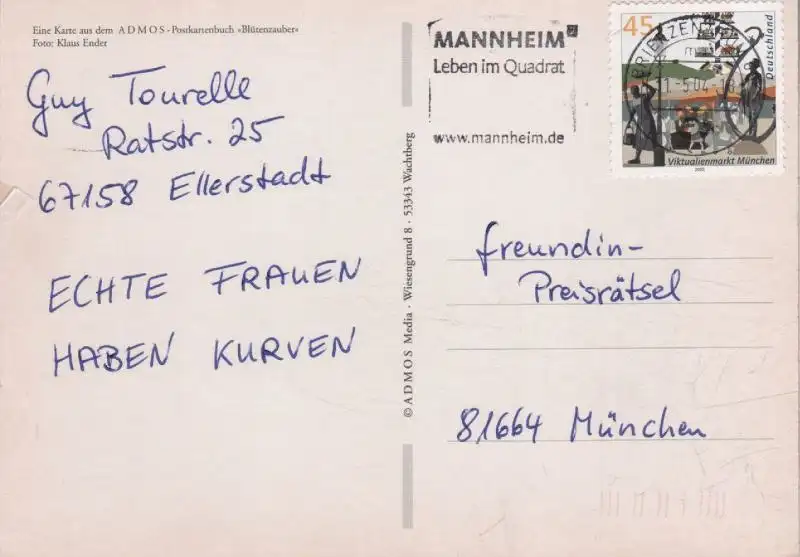 Eine Karte aus dem ADMOS-Postkartenbuch »Blütenzauber«
Foto: Klaus Ender
Guy Tourelle
Ratstr. 25
67158 Ellerstadt
ECHTE FRAUEN
HABEN KURVEN
© ADMOS Media · Wiesengrund 8 · 53343 Wachtberg
MANNHEIM
Leben im Quadrat
www.mannheim.de
BRIEFZENTRUM
-5.04
45
Deutschland
Viktualienmarkt München
freundin-
Preisrätsel
81664 München